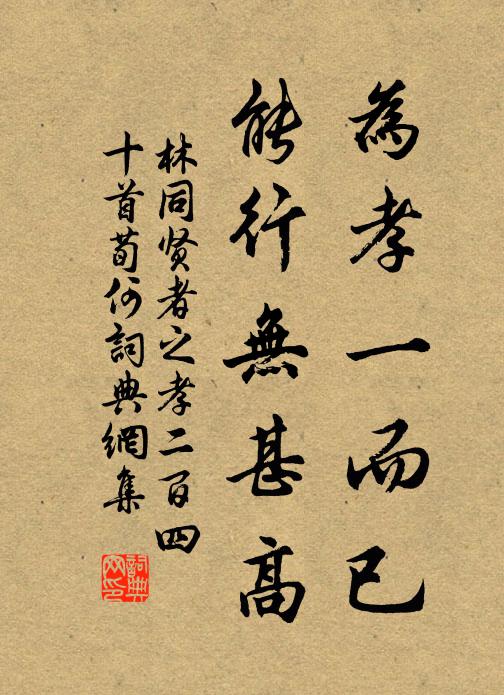 為孝一而已
能行無甚高
林同贤者之孝二百四
十首荀何詞典網集
詞典网印